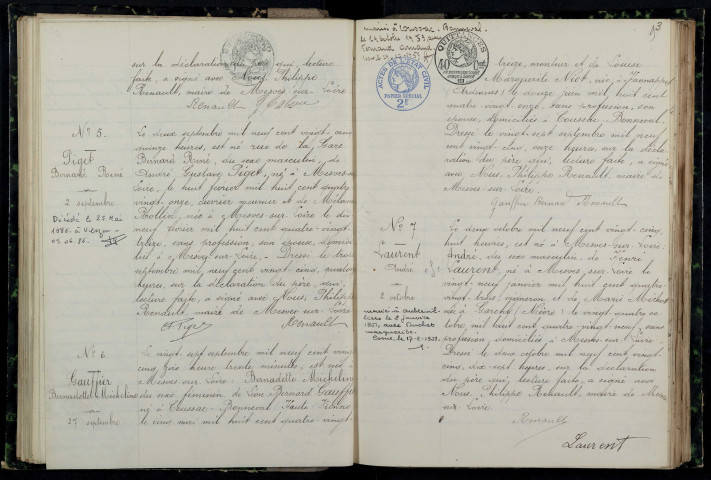 sur la déclaration du père qui, lecture
faite, a signé avec Nous, Philippe
Renault, maire de Mesves-sur-Loire
Renault
N° 5.
Piget
Bernard René
2 septembre
Décédé le 25 Mai
1986 à
Le deux septembre mil neuf cent vingt-cinq
quinze heures, est né rue de la Gare
Bernard René, du sexe masculin, de
André Gustave Piget, né à Mesves-sur
Loire, le huit
vingt-onze, ouvrier meunier et de Mélanie
née à Mesves-sur-Loire le dix
neuf février mil huit cent quatre-vingt
treize, sans profession, son épouse, domiciliés
à Mesves-sur-Loire. Dressé le trois
septembre mil neuf cent vingt-cinq,
heures, sur la déclaration du père, qui,
lecture faite, a signé avec Nous, Philippe
Renault, maire de Mesves-sur-Loire
Piget Renault
N° 6.
Gauffier
Bernadette Micheline
27 septembre
Le vingt sept septembre mil neuf cent vingt
cinq heure trente minutes, est née à
Mesves-sur-Loire, Bernadette Micheline
du sexe féminin de Léon Bernard Gauffier
né à Coussac-Bonneval Haute Vienne
le cinq mai mil huit cent quatre-vingt-
3
mariée à Coussac-Bonneval
le 24 octobre 1953 avec
Fernand
ACTES DE L'ÉTAT CIVIL
PAPIER SPÉCIAL
2F
QUITTANCES
40
treize, monteur et de Louise
Marguerite Niet, née à
Ardennes le douze juin mil huit cent
quatre-vingt-onze, sans profession, son
épouse, domiciliés à Coussac-Bonneval.
Dressé le vingt-sept septembre mil neuf
cent vingt cinq, onze heures, sur la décla-
ration du père qui, lecture faite, a signé
avec Nous, Philippe Renault, maire de
Mesves-sur-Loire.
Gauffier Bernard Renault
N° 7
Laurent
André
2 octobre
marié à
le 2 janvier
1951, avec
marguerite
Cosne, le 17-1-1951.
Le deux octobre mil neuf cent vingt-cinq,
huit heures, est né à Mesves-sur-Loire
André, du sexe masculin de Henri
Laurent, né à Mesves-sur-Loire le
vingt neuf janvier mil huit cent quatre
vingt-trois vigneron et de Marie Michot
née à Garchy (Nièvre) le vingt quatre oc-
tobre mil huit cent quatre-vingt-neuf, sans
profession, domiciliés à Mesves-sur-Loire.
Dressé le deux octobre mil neuf cent vingt-
cinq, dix sept heures, sur la déclaration
du père qui, lecture faite, a signé avec
Nous, Philippe Renault, maire de Mesves
sur-Loire.
Renault
Laurent